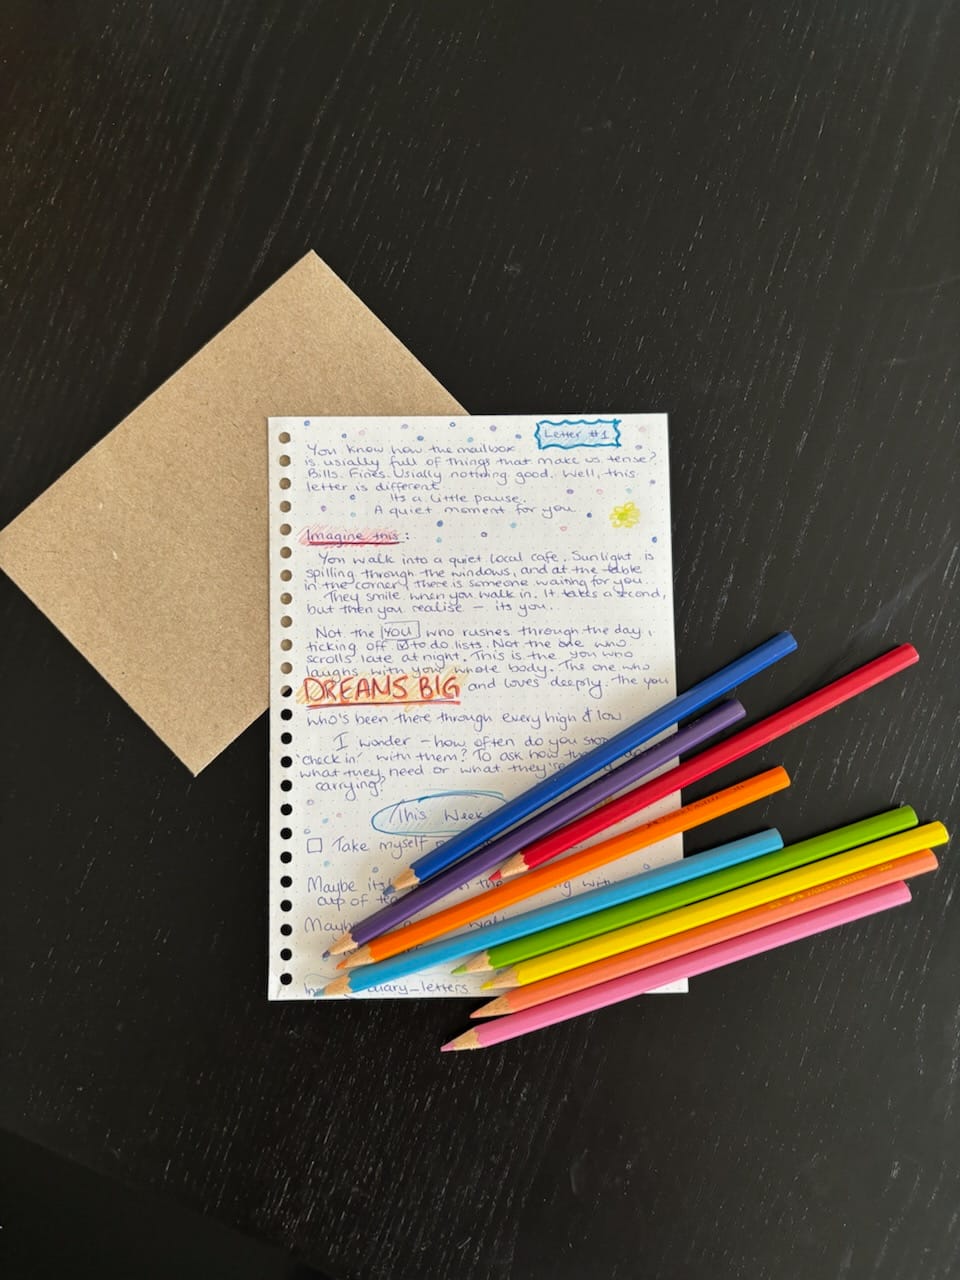 Letter #1
You know how the mailbox
is usially full of things that make us tense?
Bills. Fines. Usially nothing good. Well, this
letter is different
Its a little pause.
A quiet moment for you
Imagine this:
You walk into a quiet local cafe. Sunlight is
spilling through the windows, and at the table
in the corner, there is someone waiting for you...
They smile when you walk in. It takes a second,
but then you realise – its you...
Not the YOU who rushes through the day,
ticking off to do lists. Not the one who
scrolls late at night. This is the you who
laughs with your whole body. The one who
DREAMS BIG and loves deeply. The you
who's been there through every high & low
I wonder – how often do you stop
'check in' with them? To ask how
what they need or what they're
carrying?
This Week
Take myself
Maybe
cup of
Maybe
diary_letters